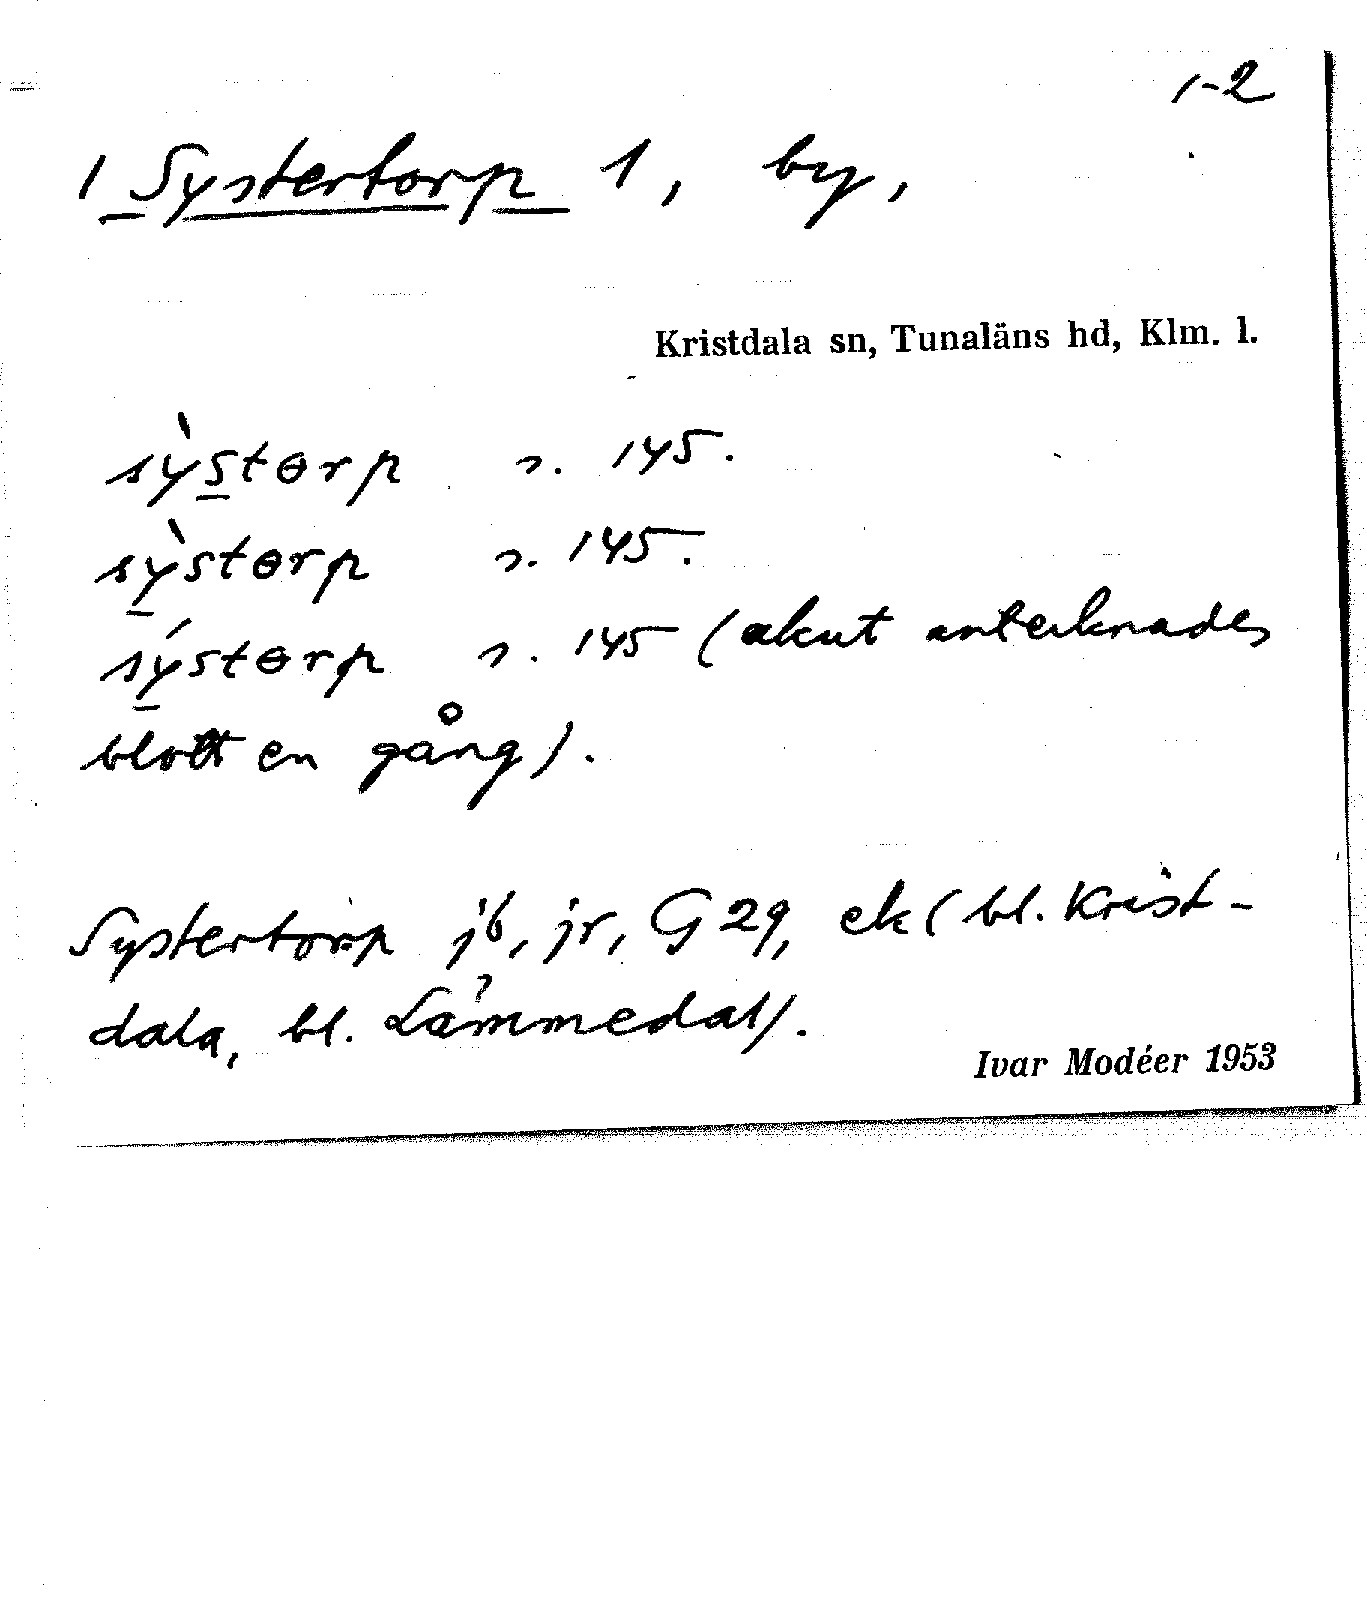 1-2
1 Systertorp 1, by,
Kristdala sn, Tunaläns hd, Klm. l.
sỳstɵrp s. 145.
sỳstɵrp s. 145.
sýstɵrp s. 145 (akut antecknades
blott en gång).
Systertorp jb, jr, G 29, ek (bl. Krist-
dala, bl. Lämmedal).
Ivar Modéer 1953